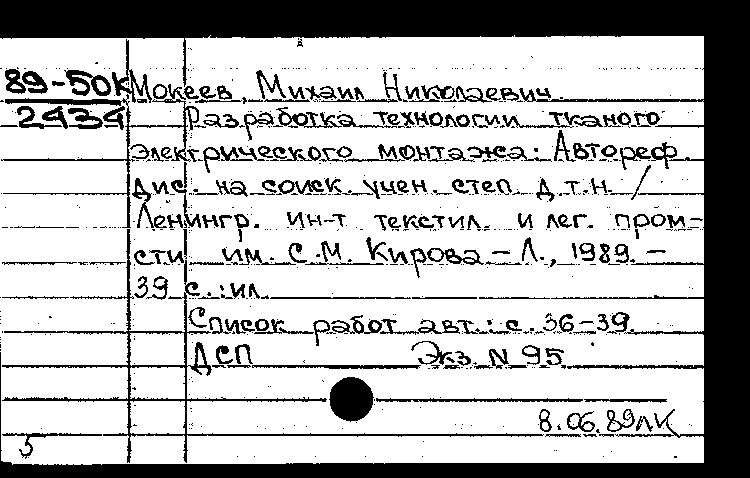 89-50К Мокеев, Михаил Николаевич
2434 Разработка технологии тканого
электрического монтажа: Автореф.
дис. на соиск. учен. степ. д.т.н. /
Ленингр. ин-т текстил. и лег. пром-
сти им. С.М. Кирова - Л., 1989. -
39 с.: ил.
Список работ авт.: с. 36-39.
ДСП Экз. N 95
8.06.89лК
5